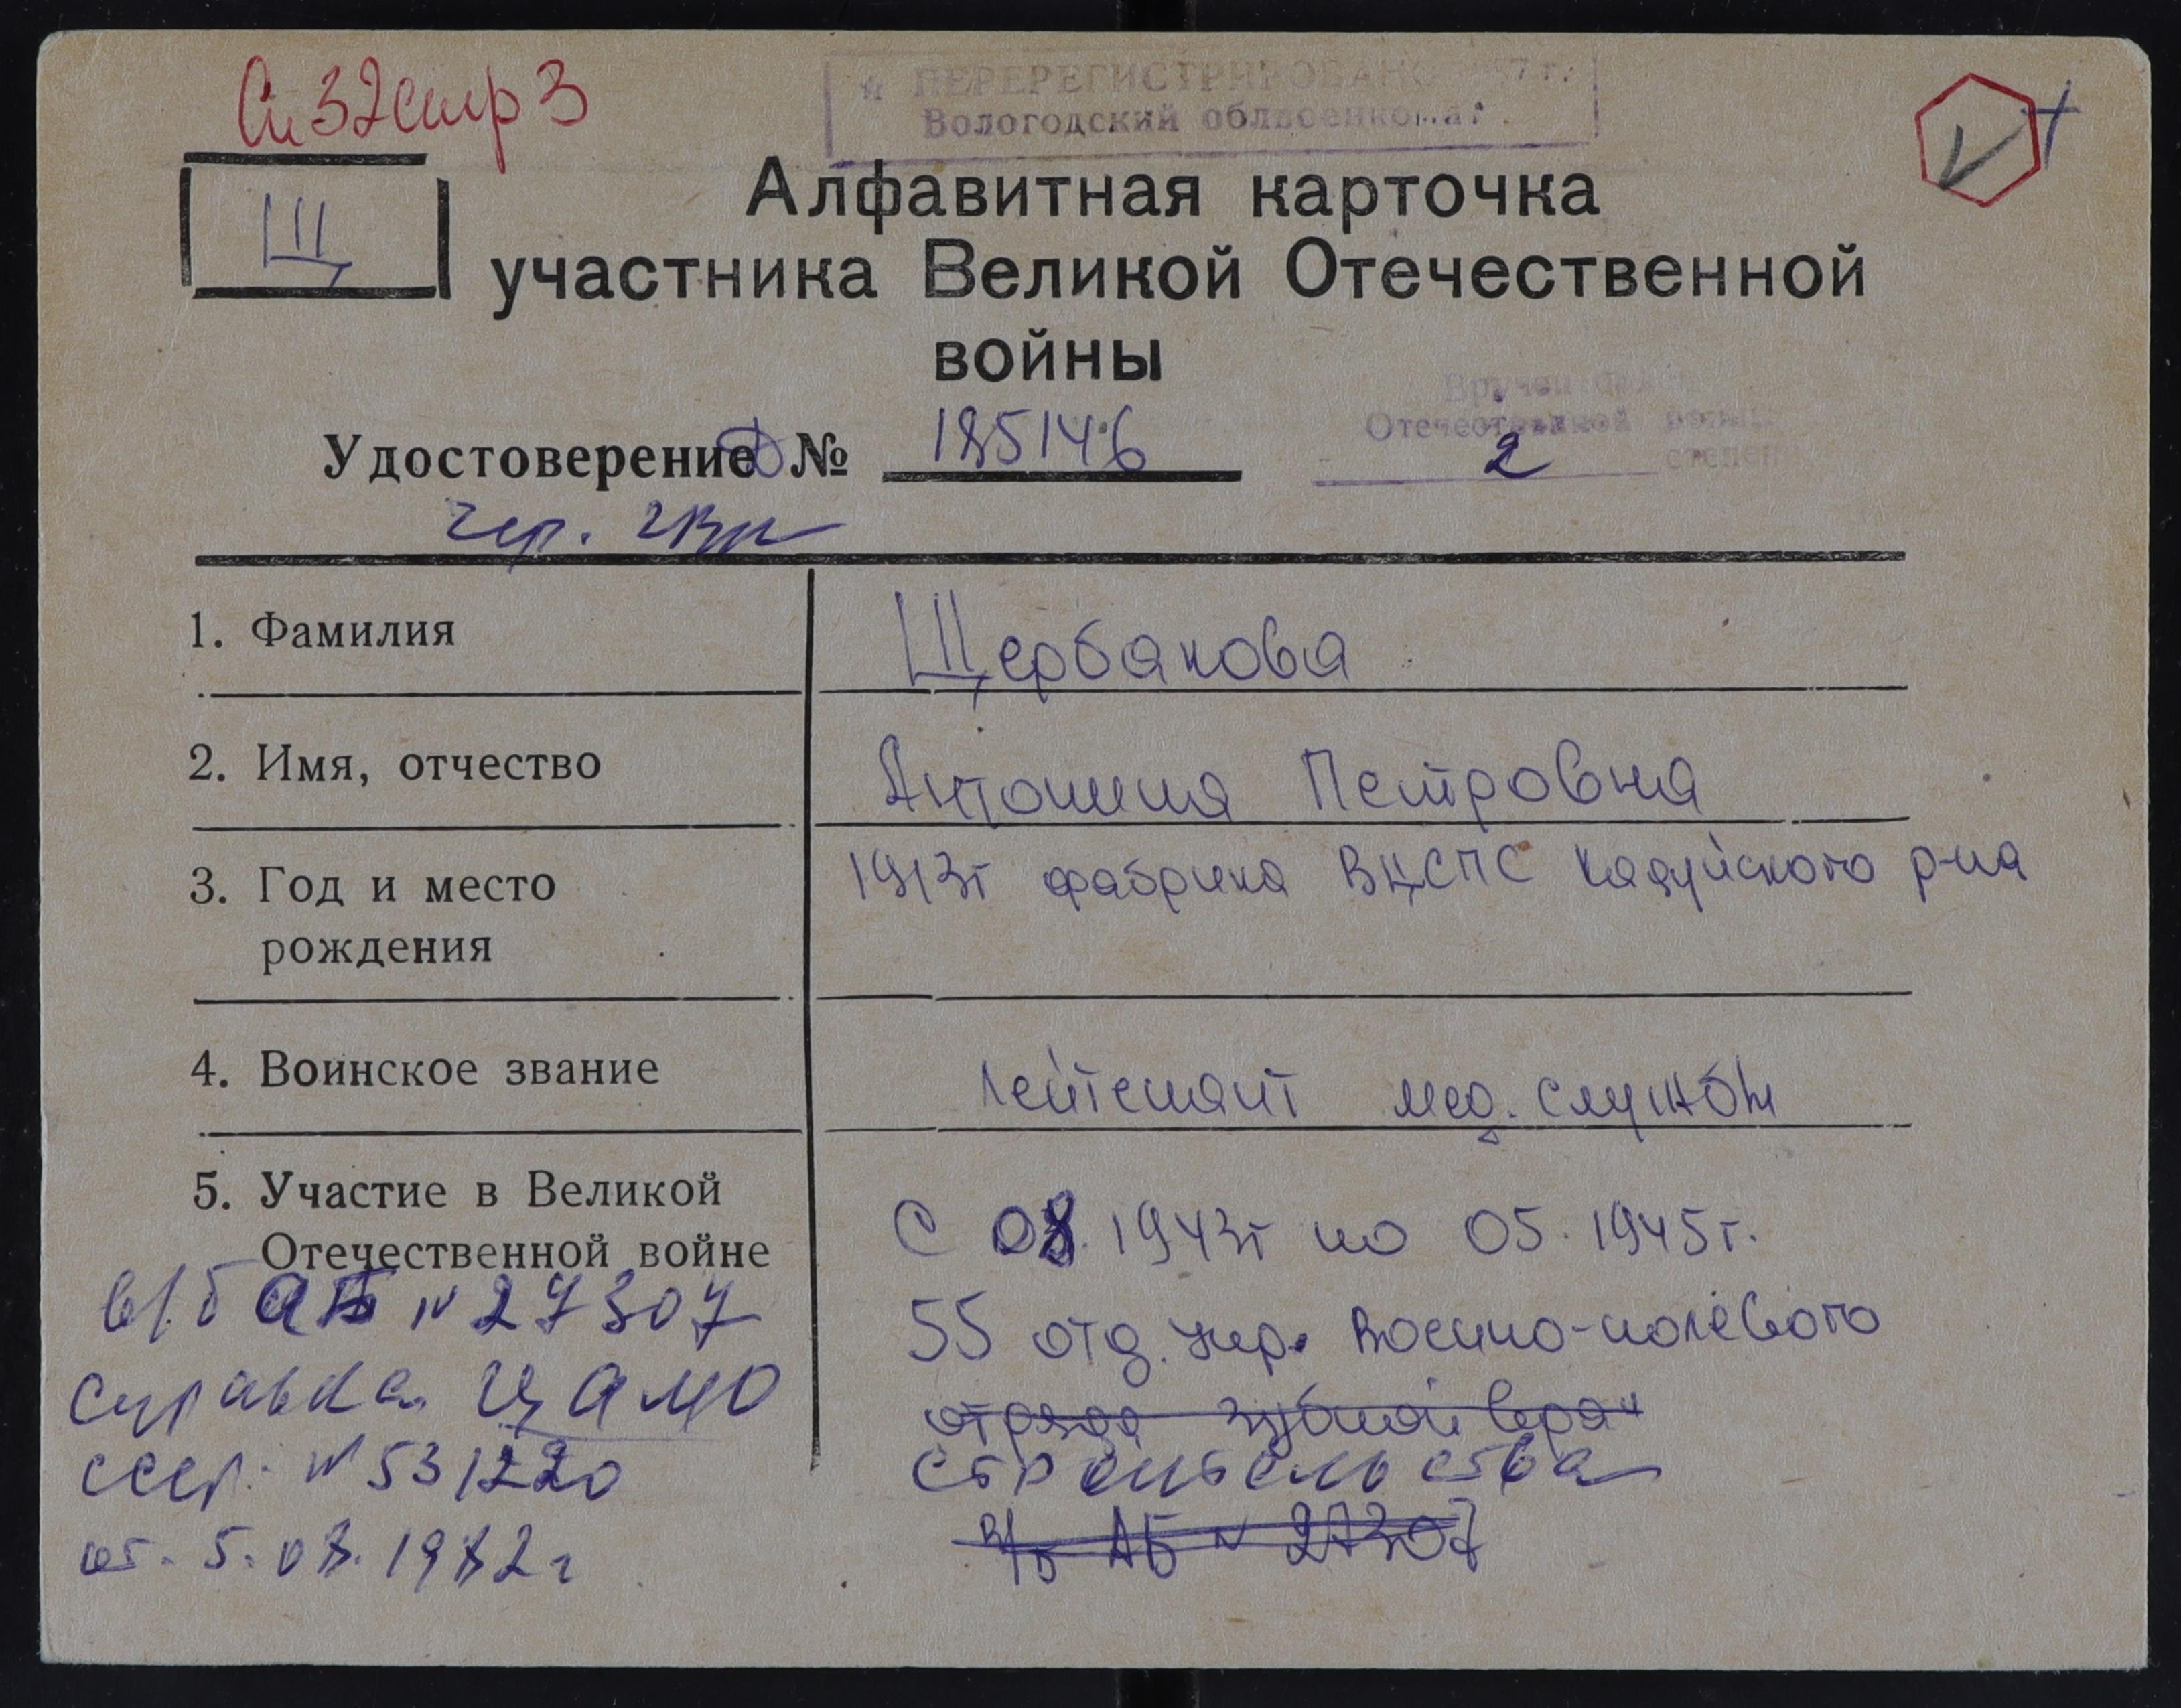 Сп 32 стр 3
ПЕРЕРЕГИСТРИРОВАНО 7 г.
Вологодский облвоенкомат
Щ
Алфавитная карточка
участника Великой Отечественной
войны
Вручен
Отечественной
2 степени
Удостоверение Д № 185146
1. Фамилия Щербакова
2. Имя, отчество Антонина Петровна
3. Год и место 1913г фабрика ВЦСПС Кадуйского р-на
рождения
4. Воинское звание лейтенант мед. службы
5. Участие в Великой
Отечественной войне
С 08.1943г по 05.1945г.
55 отд. упр. военно-полевого
отряда зубной врач
строительства
в/б АБ № 27307
в/б АБ № 27307
справка ЦАМО
ссср. № 531220
от. 5.08.1982г